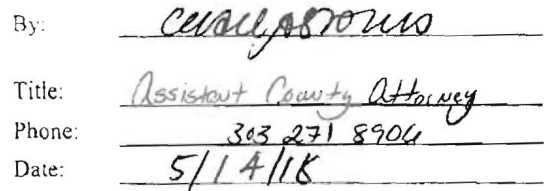 By:
Title: Assistant County Attorney
Phone: 303 271 8906
Date: 5/14/18